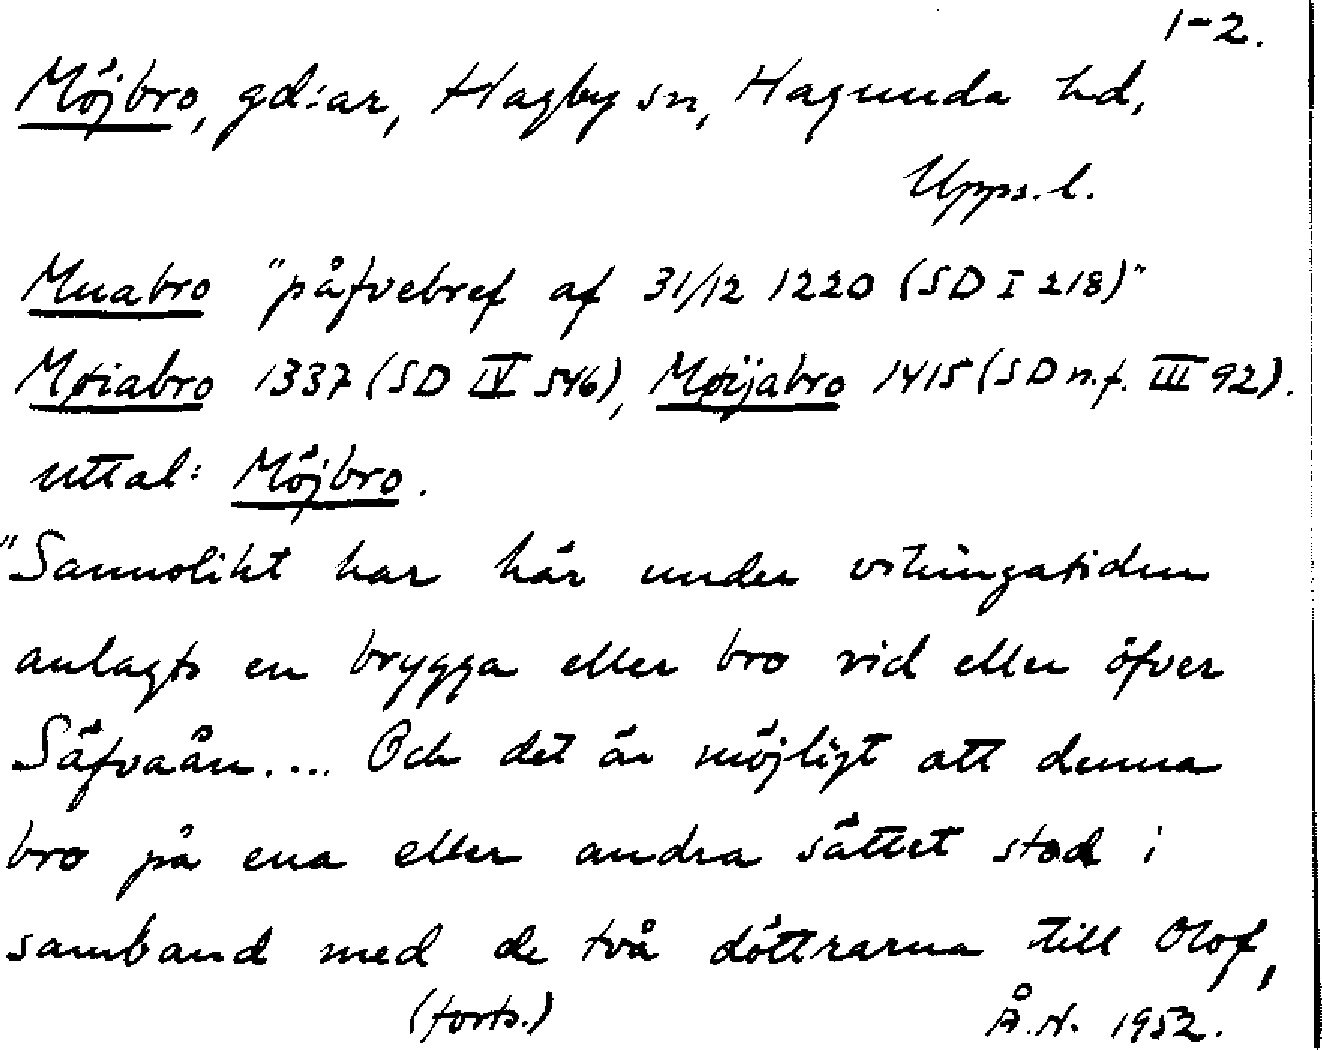 1-2.
Möjbro, gd:ar, Hagby sn, Hagunda hd,
Upps.l.
Muabro "påfvebref af 31/12 1220 (SD I 218)"
Møiabro 1337 (SD IV 546), Møijabro 1415 (SD n.f. III 92).
uttal: Möjbro.
"Sannolikt har här under vikingatiden
anlagts en brygga eller bro vid eller öfver
Säfvaån.... Och det är möjligt att denna
bro på ena eller andra sättet stod i
samband med de två döttrarna till Olof,
(forts.) Å.N. 1952.